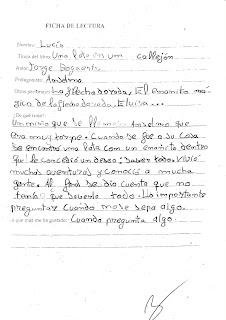 FICHA DE LECTURA
Nombre: Lucía
Título del libro: Una lata en un callejón
Autor: Jorge
Protagonista: Anselmo
Otros personajes: La flecha dorada, El enanito má
gico de la flecha dorada, Eluisa...
¿De qué trata?
Un niño que se llama Anselmo que
era muy torpe. Cuando se fue a su casa
se encontró una lata con un enanito dentro
que le concedió un deseo: saber todo. Vivió
muchas aventuras y conoció a mucha
gente. Al final se dio cuenta que no
tenía que saberlo todo. Lo importante
preguntar cuando no se sepa algo.
Lo que más me ha gustado: Cuando pregunta algo.